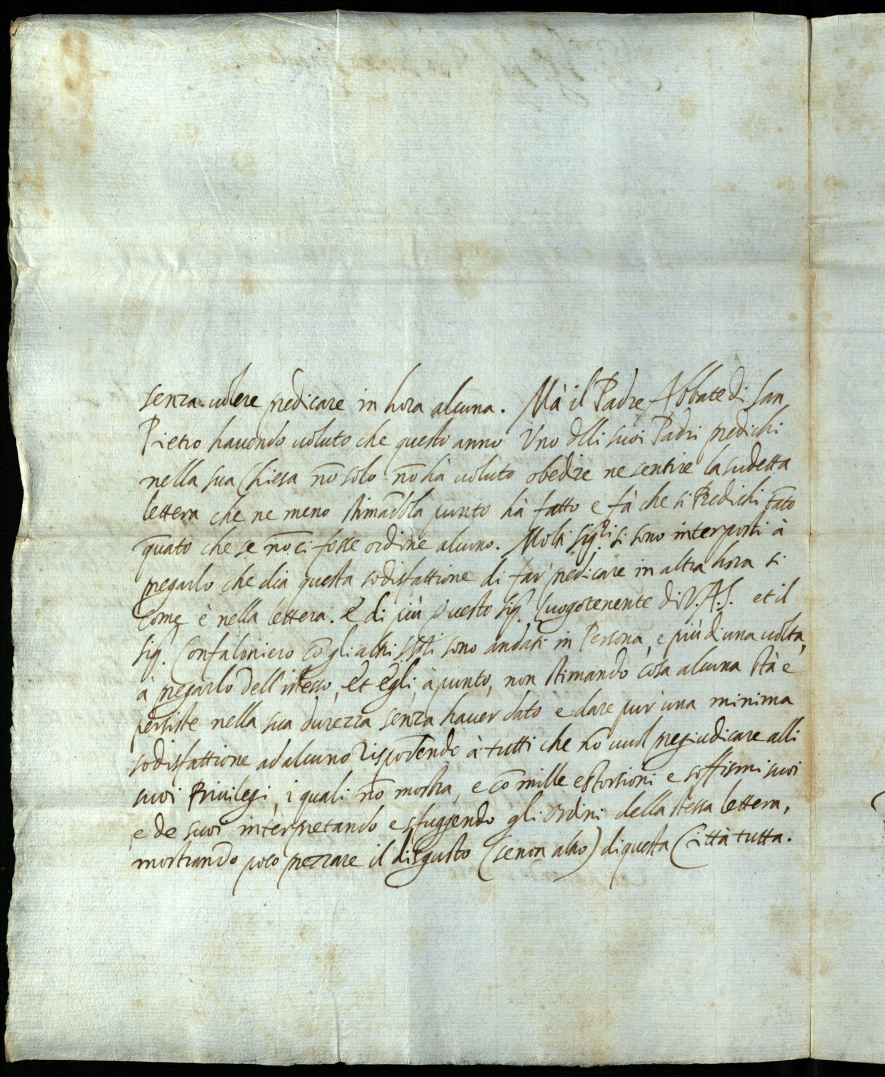 senza volere predicare in hora alcuna. Mà il Padre Abbate di San
Pietro havendo voluto che questo anno Uno delli suoi Padri predichi
nella sua Chiesa nõ solo nõ hà voluto obedire ne sentire la sudetta
lettera che ne meno stimandola punto hà fatto e fà che si Predichi tãto
quãto che se nõ ci fosse ordine alcuno. Molti sig.ri si sono interposti à
pregarlo che dia questa sodisfattione di far predicare in altra hora si
come è nella lettera. E di più questo Sig. Luogotenente di V.A.S. et il
Sig. Confaloniero cõ gli altri sono andati in Persona, e più d'una volta,
à pregarlo dell'istesso, et egli à punto, non stimando cosa alcuna stà e
persiste nella sua durezza senza haver dato e dare pur una minima
sodisfattione ad alcuno rispondendo à tutti che nõ vuol pregiudicare alli
suoi Privilegi, i quali nõ mostra, e cõ mille estorsioni e soffismi suoi
e de suoi interpretando e sfuggendo gli ordini della stessa lettera,
mostrando poco prezzare il disgusto (se non altro) di questa Città tutta.